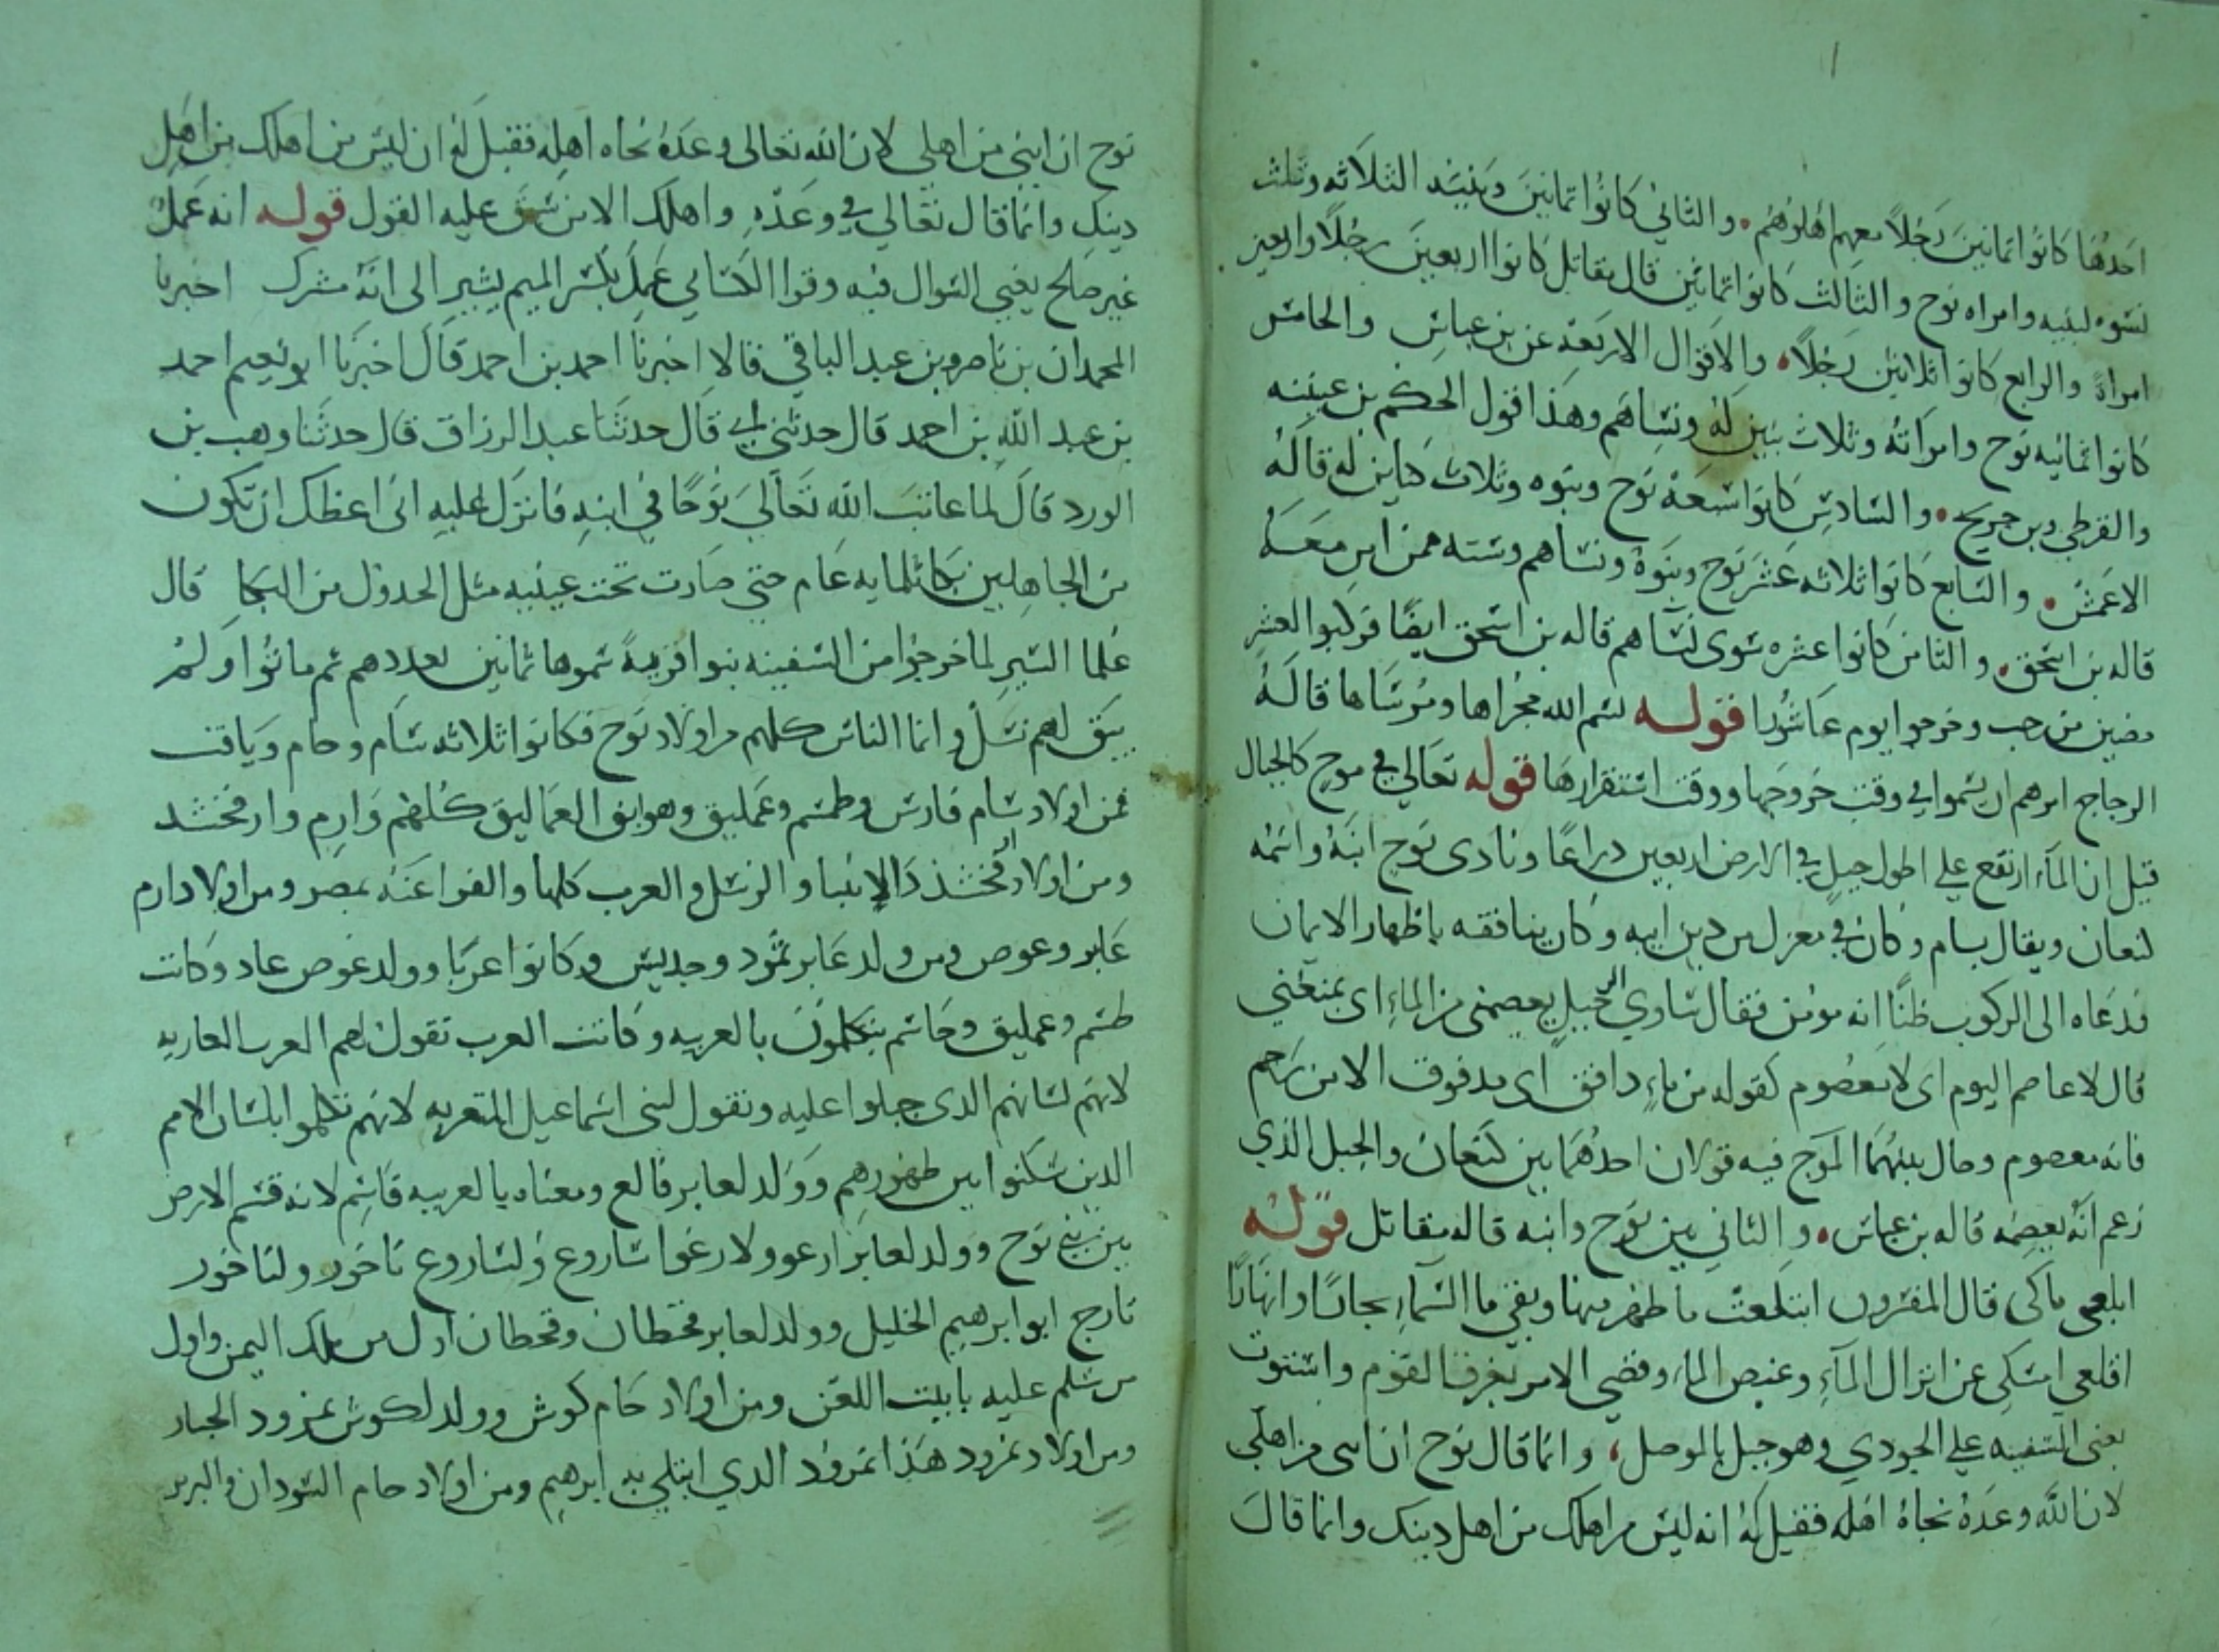 احدُها كانُوا ثمانينَ رَجُلاً معهم اهَلوهُم • والثاني كانُوا ثمانينَ وبَنيَنه الثلاثه وثلث
نسَوه لبنيه وامراه نوح والثالث كانوا ثمانين قال مقاتل كانوا اربعينَ رجُلاً واربعين
امراةً والرابع كانوا ثلاثين رَجُلاً • والاقوال الاربَعَه عن بن عباسٍ والخامس
كانوا ثمانيه نوح وامرَاتهُ وثلاث بنين لهِ ونسَاهم وهذا قول الحكم بن عيينه
والقرطي وبن جريح • والسَادس كانوا سَبعَهُ نوح وبنوه وثلاث كناين له قالَهُ
الاعَمش • والسَابع كانوا ثلاثه عَشر نوح وبَنوهُ ونسَاهم وستَه ممن امن معَهُ
قاله بن اسحق • والثامن كانوا عشره سَوى نسَاهم قاله بن اسَحق ايضًا فركبوا لعشرٍ
مضين من رجب وخرجوا يوم عَاشُورا قوله بسَم الله مجراها ومُرسَاها قالَهُ
الزجاج امرهم ان يسَموا في وقت خروجَها ووقت استَقرارهَا قوله تعَالي في موج كالجبال
قيل ان الماَء ارتفع علي اطول جبلٍ في الارض اربعين دراعًا ونادى نوح ابنَهُ واسَمُه
كنعان ويقال يسام وكان في معزل من دين ابيه وكان ينافقه باظهار الايمان
فدعَاه الى الركوب ظنًا انه مومن فقال سَاوي الي جبل يعصمنى من الماءِ اى يمنعَني
قال لا عاصم اليوم اى لا معصُوم كقوله من ماءٍ دافق اى مدفوق الا من رَحم
فانه معصوم وحال بينهُمَا الموج فيه قولان احدُهُمَا بين كنَعان والجبل الذي
زعم انهُ يعصِمُه قاله بن عباس • والثاني بين نوح وابنه قاله مقاتل قوله
ابلعى ماكى قال المفسَرون ابتلعَت ما ظهر منها وبقي ما السَماءِ بحارًا وانهَارًا
اقلعى امسَكى عن انزال الماَءِ وغيض الماء وقضي الامر بغرق القوم واستَوت
يعنى السَفينه علي الجودي وهو جبل بالموصل • وانما قال نوح ان ابنى من اهلي
لان الله وعَدهُ نجاهُ اهَله فقيل لهُ انه ليسَ من اهلك من اهل دينك وانما قالَ
نوح ان ابني من اهلي لان الله تعالى وعَدَهُ نجاه اهله فقيل لَهُ ان ليسَ من اهلك من اهل
دينك وانما قال تعَالي في وعَدَهِ واهلك الا من سَبق عليه القول قوله انه عَملٌ
غير صَالح يعني السَوال فيه وقرا الكسَاي عَمِلَ بكسَر الميم يشير الى انهُ مشرك اخبرنا
المحمدان بن ناصر وبن عبد الباقي قالا اخبرنا احمد بن احمد قالَ اخبرَنا ابو نعيم احمد
بن عبد الله بن احمد قال حدثني ابي قال حدثَنا عبد الرزاق قال حدثَنا وهب بن
الورد قالَ لما عاتبَ الله تعَالَى نوُحًا في ابنهِ فانزل عليه انى اعظك ان تكون
من الجاهِلين بكا ثلمايه عَام حتي صَارت تحت عينيه مثل الجدول من البكا قال
عُلما السَير لما خرجُوا من السَفينه بنوا قريةً سَموها ثمانين بعددهم ثم ماتُوا ولمُ
يَبق لهم نسَل وانما الناس كلهم من اولاد نوح فكانوا ثلاثه سَام وحام ويَافت
فمن اولاد سَام فارس وطسَم وعَمليق وهو ابو العمَاليق كُلهُم وَارم وارفخشد
ومن اولاد ارفخشذ الانبيا والرسَل والعرب كلها والفراعنَهُ بمصر ومن اولاد ارم
عَابر وعوص ومن ولد عَابر ثمُود وجديس وكانوا عربًا وولد عَوص عاد وكانت
طسَم وعمليق وجَاسَم يتكلمونَ بالعربيه وكانت العرب تقول لهم العرب العاربه
لانهم لسَانهم الذى جبلوا عليه وتقول لبنى اسَماعيل المتعربه لانهَم تكلموا بلسَان الامم
الذين سَكنوا بين ظهورهم ووَلد لعابر فالع ومعناه بالعربيه قاسَم لانه قسَم الارض
بين بني نوح وولد لعابر ارعو ولارعوا سَاروع ولسَاروع نَاخور ولنا خور
تارح ابو ابرهيم الخليل وولد لعابر قحَطان وقحطان اول من ملك اليمن واول
من سَلم عليه بابيت اللعَن ومن اولاد حَام كوش وولد لكوش نمرود الجبار
ومن اولاد نمرود هَذا نمرود الذي ابتلي به ابرهيم ومن اولاد حام السَودان والبربر